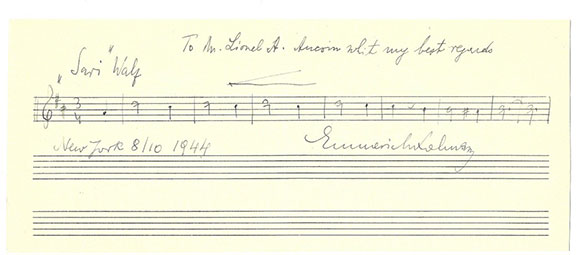 To Mr. Lionel A. Aucoin whit my best regards
„Sari" Walz
New York 8/10 1944
Emmerich Kalman